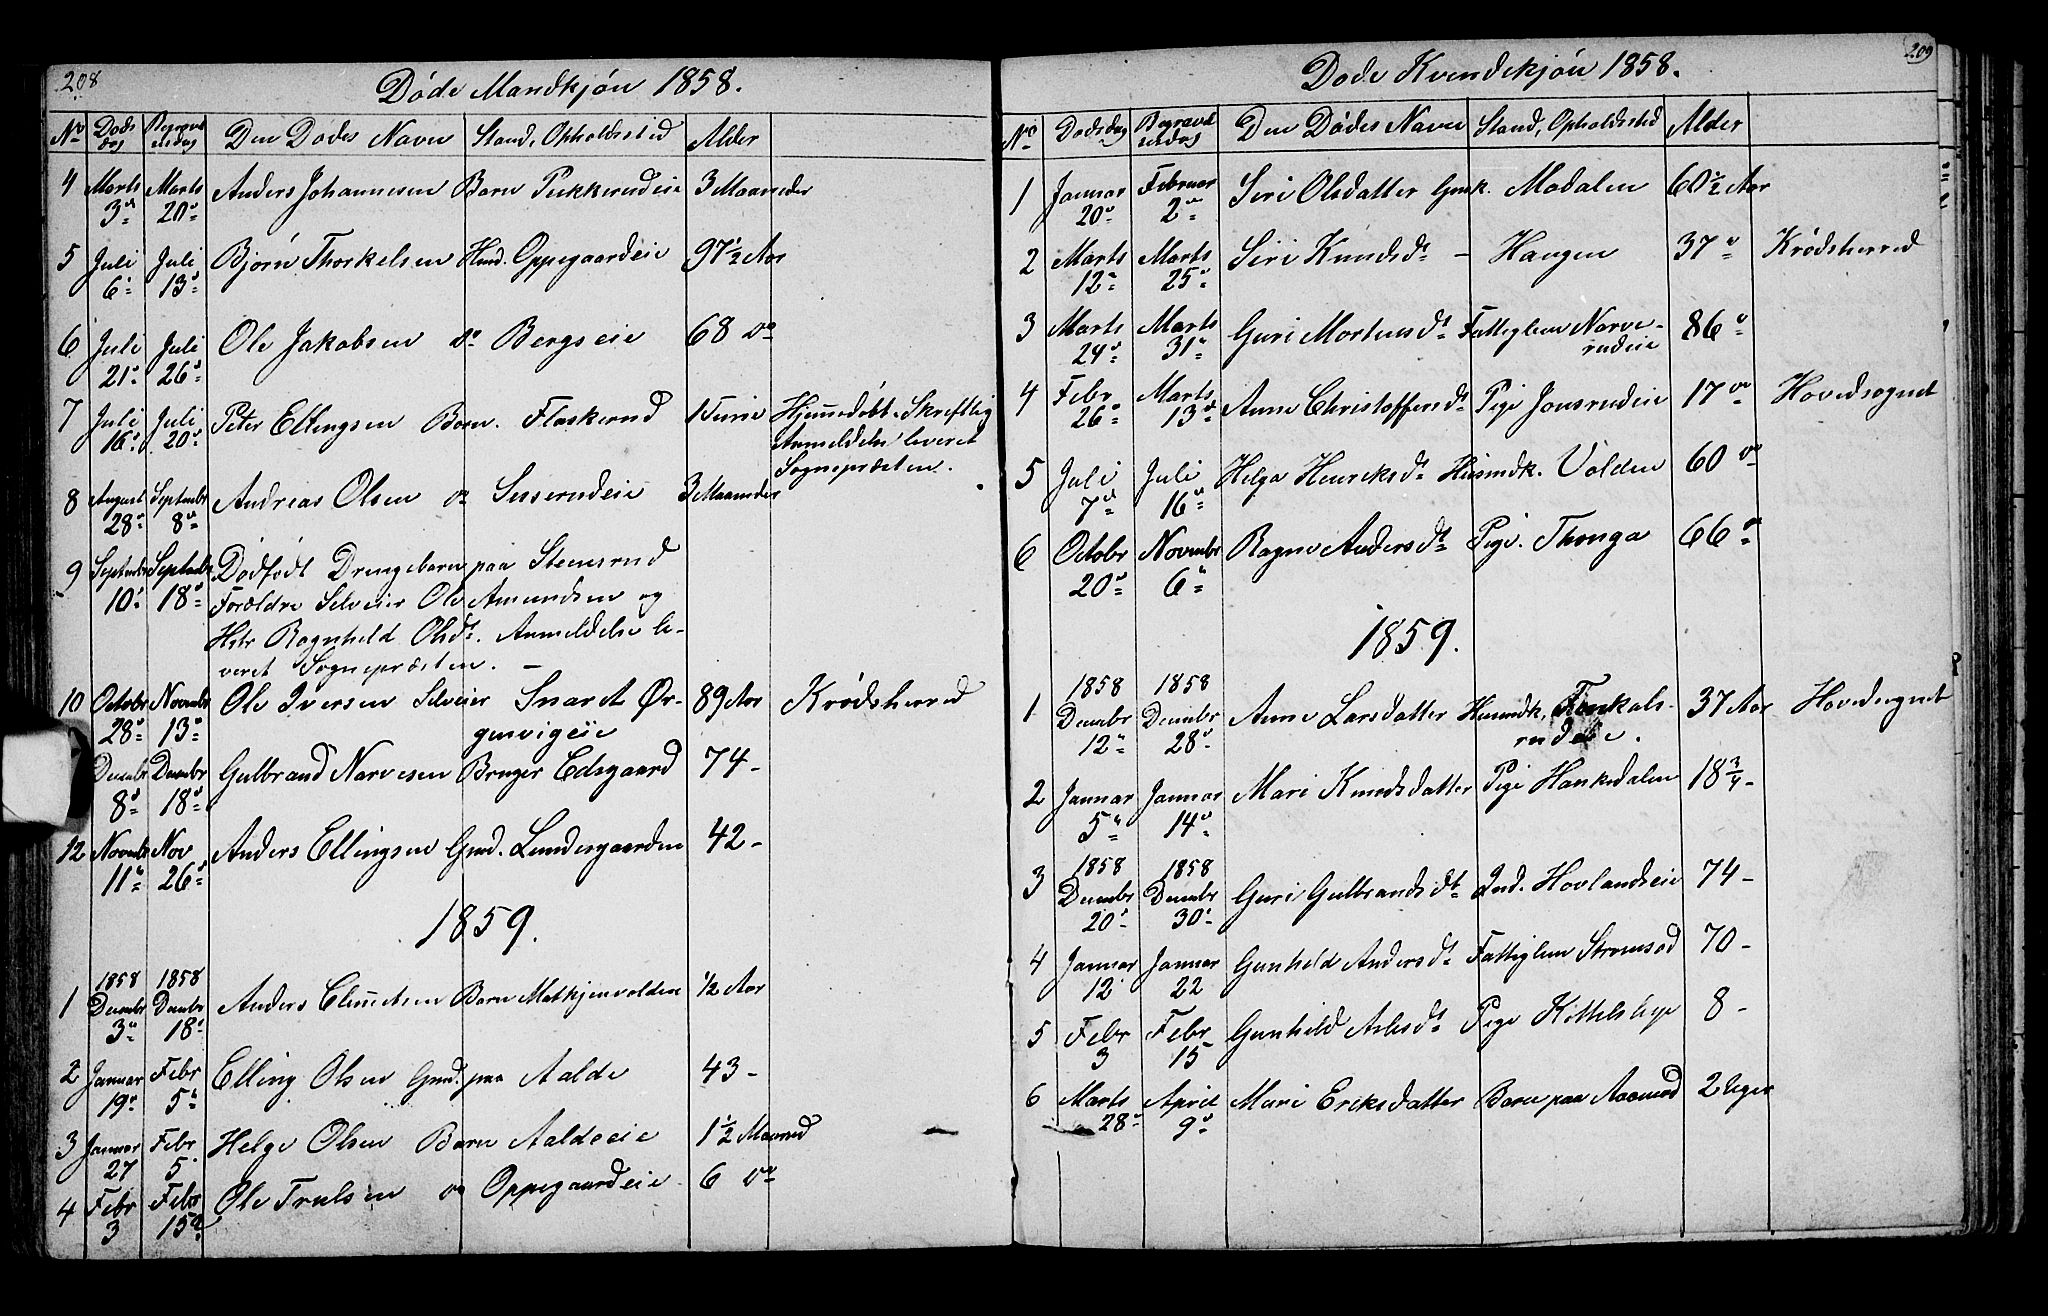 208
Døde Mandkjøn 1858.
No Døds dag Begravelsesdag Den Dødes Navn Stand, Opholdssted Alder
4 Marts 3de Marts 20de Anders Johannesen Barn 3 Maaneder
5 Juli 6te Juli 13de Bjørn Thorkelsen Huusmd. Oppegaardeie 97½ Aar
6 Juli 21de Juli 26de Ole Jakobsen do Bergseie 68 do
7 Juli 16de Juli 20de Peter Ellingsen Barn. Flaskerud 1 Time Hjemmedøbt. Skriftlig
Anmeldelse leveret
Sognepræsten.
8 August 28de Septembr 8de Andreas Olsen do 3 Maaneder
9 Septembr 10de Septembr 18de Dødfødt Drengebarn paa Steensrud
Forældre Selveier Ole Amundsen og
Hstr Ragnhild Olsdt. Anmeldelse le-
veret Sognepræsten. —
10 Octobr 28de Novembr 13de Ole Iversen Selveier Snaret Ør-
genvigeie 89 Aar Krødsherred
Decembr 8de Decembr 18de Gulbrand Narvesen Bruger Edsgaard 74 -
12 Novembr 11te Nov 26de Anders Ellingsen Gmd. Lundesgaarden 42 -
1859.
1 1858 Decembr 3de 1858 Decembr 18de Anders Barn ½ Aar
2 Januar 19de Febr 5te Elling Olsen Gmd. paa Aalde 43 -
3 Januar 27 Febr. 5 Helge Olsen Barn Aaldeeie 1½ Maaned
4 Febr 3 Febr 15de Ole Trulsen do Oppegaardeie 6 do
209
Døde Kvindekjøn 1858.
No Dødsdag Begravelsesdag Den Dødes Navn Stand, Opholdssted Alder
1 Januar 20de Februar 2den Siri Olsdatter Gmk. Modalen 60½ Aar
2 Marts 12te Marts 25de Siri Knudsdt — Haugen 37 do Krødsherred
3 Marts 24de Marts 31te Guri Mortensdt Fattiglem Narve-
rudeie 86 do
4 Febr 26de Marts 13de Anne Christoffersdt Pige Jonsrudeie 17 do Hovedsognet
5 Juli 7de Juli 16de Helga Henriksdt Huusmdk. Volden 60 do
6 Octobr 20de Novembr 6te Ragne Andersdt Pige. Thonga 66 do
1859.
1 1858 Decembr 12te 1858 Decembr 28de Anne Larsdatter Huusmdk,
37 Aar Hovedsognet
2 Januar 5te Januar 14de Mari Knudsdatter Pige Hanksdalen 18¾ -
3 1858 Decembr 20de 1858 Decembr 30te Guri Gulbrandsdt Ind. Hovlandseie 74 -
4 Januar 12 Januar 22 Gunhild Andersdt Fattiglem Stromsod 70 -
5 Febr 3 Febr 15 Gunhild Aslesdt Pige Kittelsbye 8 -
6 Marts 28de April 9de Mari Eriksdatter Barn paa Aaserud 2 Uger